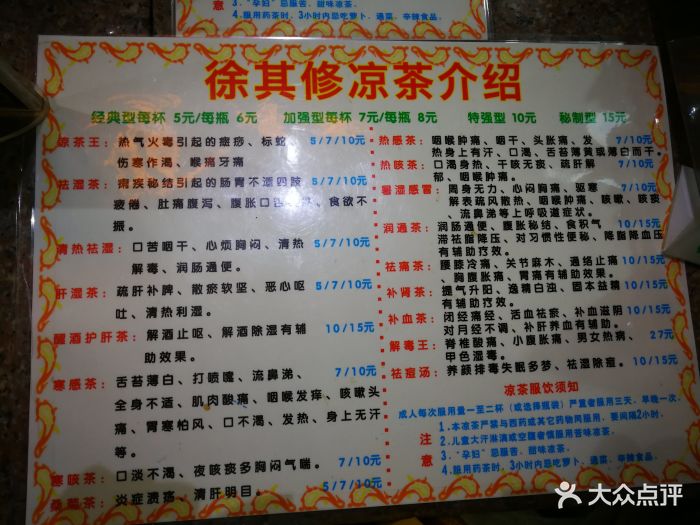 注
意
3．"孕妇"忌服苦、甜味凉茶．
4．服用药茶时、3小时内忌吃萝卜、通菜、辛辣食品．
徐其修凉茶介绍
经典型每杯 5元/每瓶 6元 加强型每杯 7元/每瓶 8元 特强型 10元 秘制型 15元
凉茶王：热气火毒引起的痘痧、标蛇、 5/7/10元
伤寒作渴、喉痛牙痛
祛湿茶： 5/7/10元
疲倦、肚痛腹泻、腹胀口 、食欲不
振。
清热祛湿：口苦咽干、心烦胸闷、清热 5/7/10元
解毒、润肠通便。
肝湿茶：疏肝补脾、散瘀软坚、恶心呕 5/7/10元
吐、清热利湿。
醒酒护肝茶：解酒止呕、解酒除湿有辅 10/15元
助效果。
寒感茶：舌苔薄白、打喷嚏、流鼻涕、 7/10元
全身不适、肌肉酸痛、咽喉发痒、咳嗽头
痛、胃寒怕风、口不渴、发热、身上无汗
等。
寒咳茶：口淡不渴、夜咳痰多胸闷气喘。 7/10元
桑菊茶：炎症溃痛、清肝明目。 5/7/10元
热感茶：咽喉肿痛、咽干、头胀痛、发 7/10元
热身上有汗、口渴、舌苔薄黄或薄白而干。
热咳茶：口渴身热、干咳无痰、疏肝解 7/10元
郁、咽喉肿痛。
暑湿感冒：周身无力、心闷胸痛、驱寒 7/10元
解表疏风散热、咽喉肿痛、咳嗽、咳痰
、流鼻涕等上呼吸道症状。
润通茶：润肠通便、腹胀秘结、食积气 10/15元
滞祛脂降压、对习惯性便秘、降脂降血压
有辅助疗效。
祛痛茶：腰膝冷痛、关节麻木、通络止痛 10/15元
、胸腹胀痛、胃痛有辅助效果。
补肾茶：提气升阳、遗精白浊、固本益精 10/15元
有辅助疗效。
补血茶：闭经痛经、活血祛瘀、补血滋阴 10/15元
、对月经不调、补肝养血有辅助。
解毒王：脊椎酸痛、小腹胀痛、男女热病、 27元
甲色湿毒。
祛痘汤：养颜排毒失眠多梦、祛湿除痘。 10/15元
凉茶服饮须知
成人每次服用量一至二杯（或选择瓶装）严重者服用三天．早晚一次．
注
意
1．本凉茶严禁与西药或其它药物同服用．要间隔2小时．
2．儿童大汗淋漓或空腹者慎服用苦味凉茶．
3．"孕妇"忌服苦、甜味凉茶．
4．服用药茶时、3小时内忌吃萝卜、通菜、辛辣食品．
大众点评